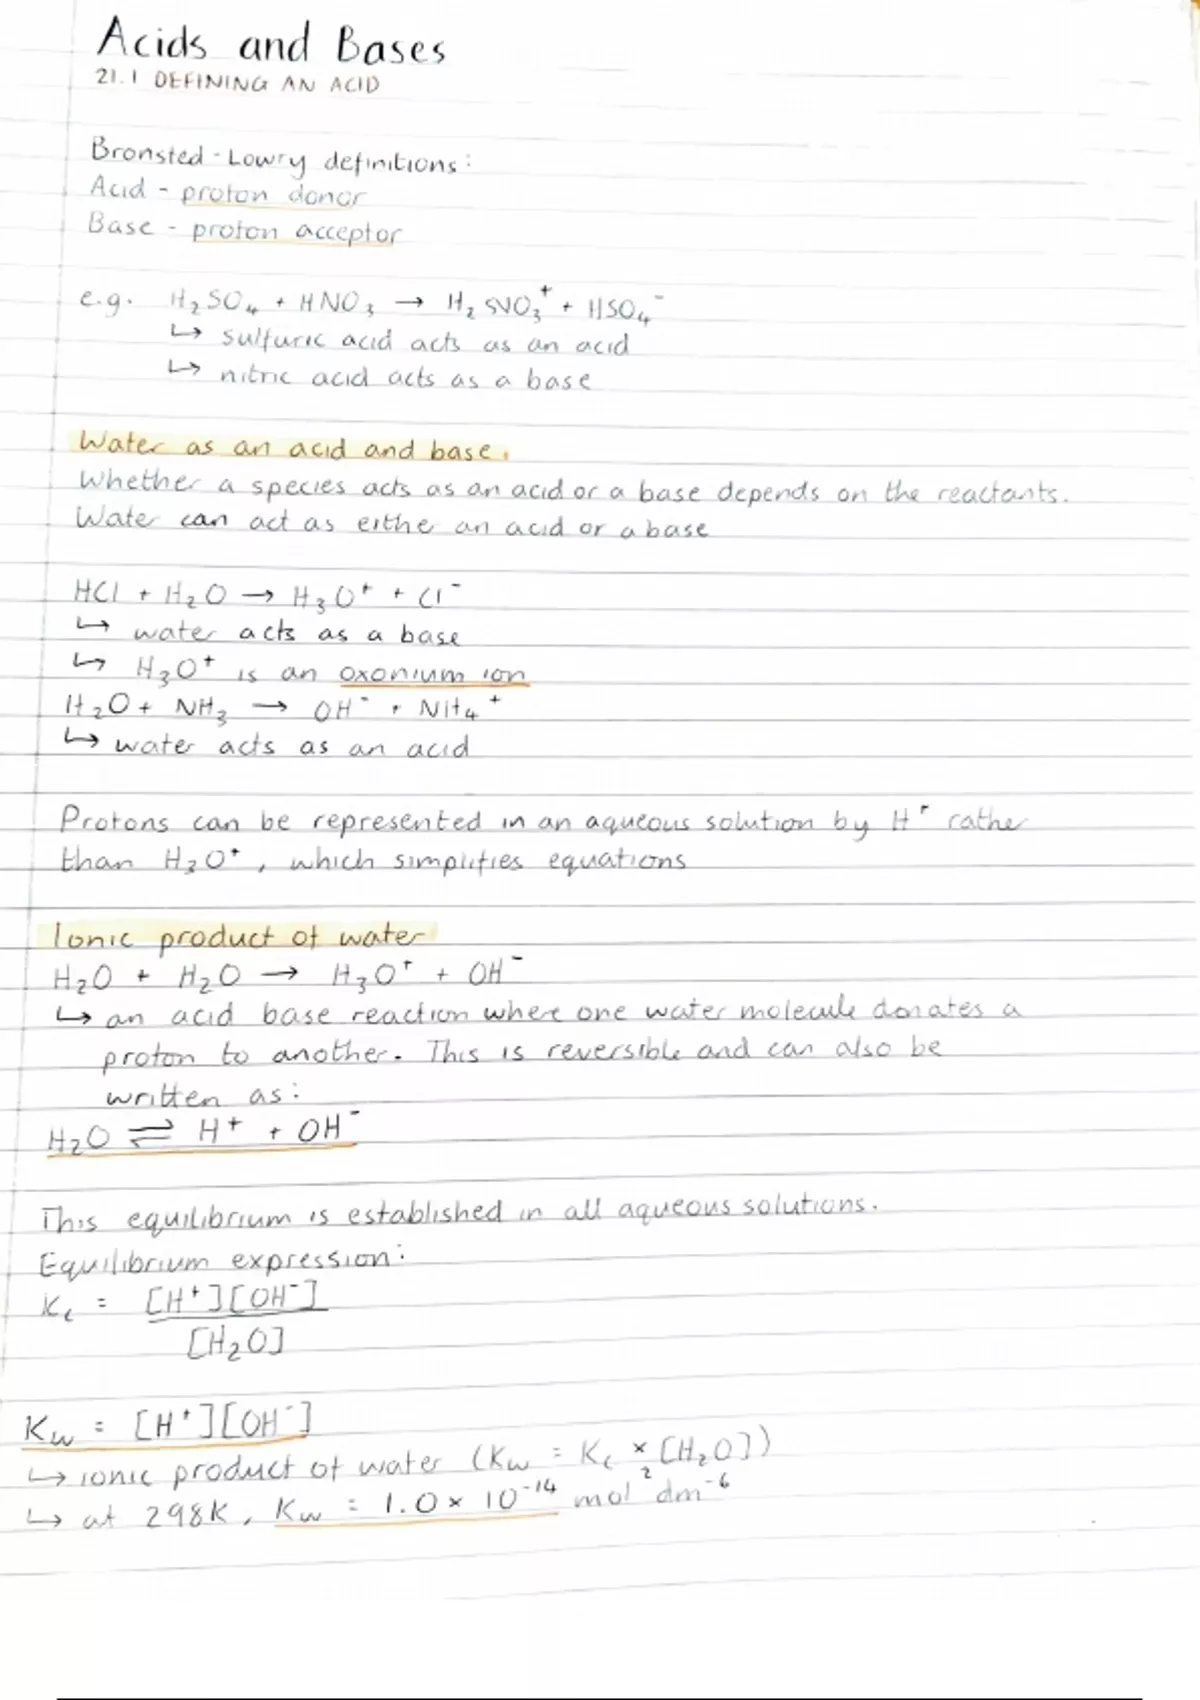 Acids and Bases
21.1 DEFINING AN ACID
Bronsted-Lowry definitions:
Acid - proton donor
Base - proton acceptor
e.g. H₂SO₄ + HNO₃ → H₂NO₃⁺ + HSO₄⁻
↳ sulfuric acid acts as an acid
↳ nitric acid acts as a base
Water as an acid and base.
Whether a species acts as an acid or a base depends on the reactants.
Water can act as eithe an acid or a base
HCl + H₂O → H₃O⁺ + Cl⁻
↳ water acts as a base
↳ H₃O⁺ is an oxonium ion
H₂O + NH₃ → OH⁻ + NH₄⁺
↳ water acts as an acid
Protons can be represented in an aqueous solution by H⁺ rather
than H₃O⁺, which simplifies equations
Ionic product of water
H₂O + H₂O → H₃O⁺ + OH⁻
↳ an acid base reaction where one water molecule donates a
proton to another. This is reversible and can also be
written as:
H₂O ⇌ H⁺ + OH⁻
This equilibrium is established in all aqueous solutions.
Equilibrium expression:
Kc = [H⁺][OH⁻]
[H₂O]
Kw = [H⁺][OH⁻]
↳ ionic product of water (Kw = Kc × [H₂O])
↳ at 298K, Kw = 1.0 × 10⁻¹⁴ mol² dm⁻⁶